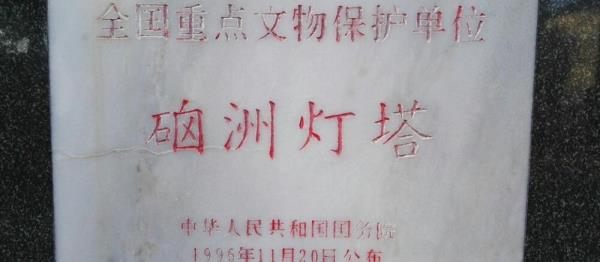 全国重点文物保护单位
硇洲灯塔
中华人民共和国国务院
1996年11月20日公布